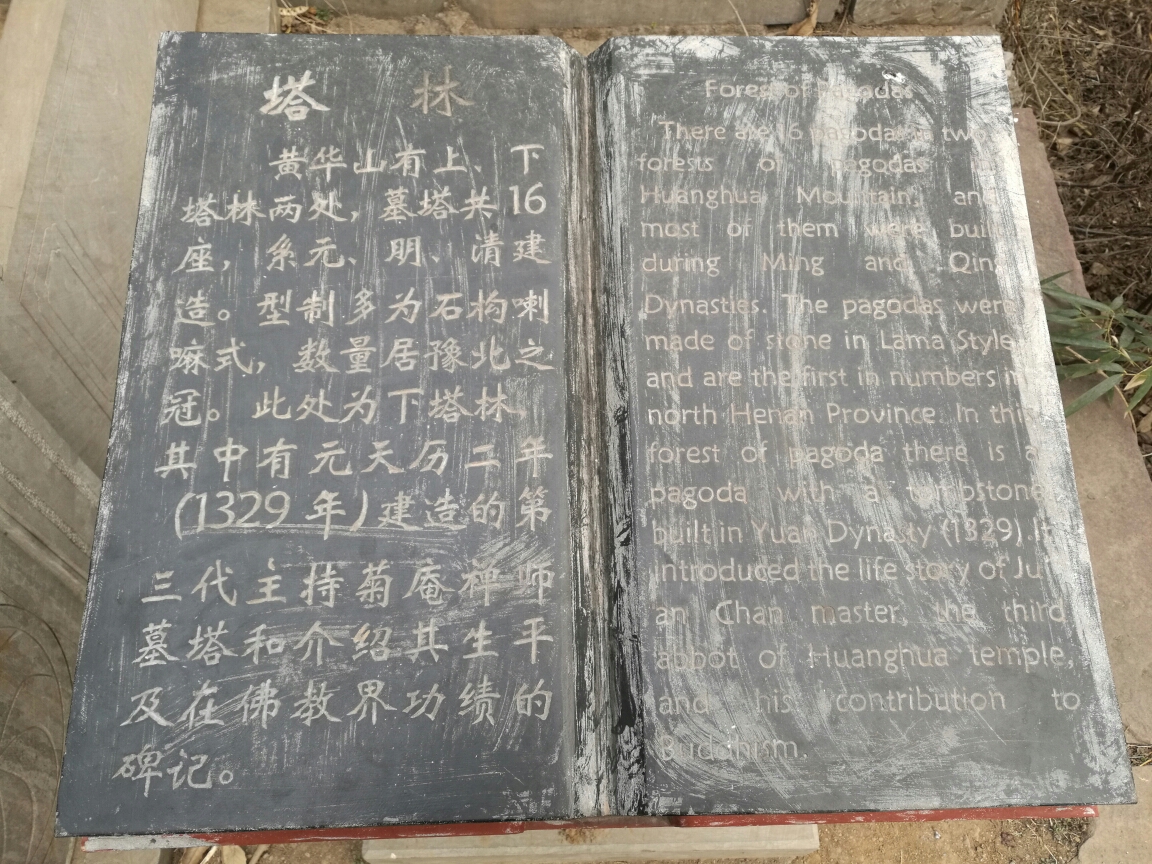 塔 林
黄华山有上、下
塔林两处，墓塔共16
座，系元、明、清建
造。型制多为石构喇
嘛式，数量居豫北之
冠。此处为下塔林，
其中有元天历二年
(1329年)建造的第
三代主持菊庵禅师
墓塔和介绍其生平
及在佛教界功绩的
碑记。
Forest of Pagodas
There are 16 pagodas two
forests of pagodas
Huanghua Mountain, and
most of them were built
during Ming and Qing
Dynasties. The pagodas were
made of stone in Lama Style
and are the first in numbers
north Henan Province. In this
forest of pagoda there is a
pagoda with a tombstone
built in Yuan Dynasty (1329). It
introduced the life story of Ju
an Chan master, the third
abbot of Huanghua temple,
and his contribution to
Buddhism.